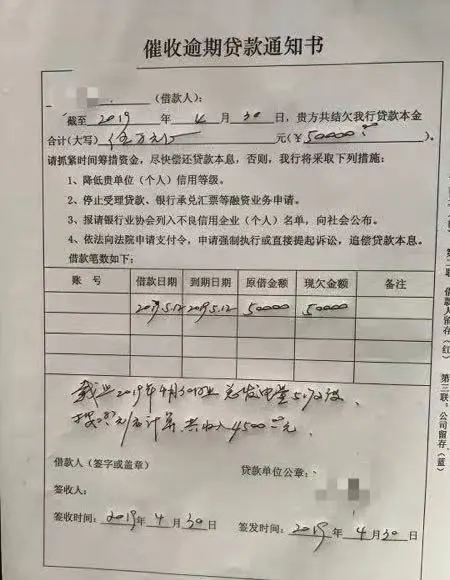 催收逾期贷款通知书
(借款人):
截至 2019 年 4 月 30 日,贵方共结欠我行贷款本金
合计(大写) 伍万元 元(¥ 50000 )。
请抓紧时间筹措资金,尽快偿还贷款本息,否则,我行将采取下列措施:
1、降低贵单位(个人)信用等级。
2、停止受理贷款、银行承兑汇票等融资业务申请。
3、报请银行业协会列入不良信用企业(个人)名单,向社会公布。
4、依法向法院申请支付令,申请强制执行或直接提起诉讼,追偿贷款本息。
借款笔数如下:
账 号 借款日期 到期日期 原借金额 现欠金额 备注
5.12 2019.5.12 50000 50000
截止2019年4月30日 总发电量
计算 共收入4500元
借款人(签字或盖章) 贷款单位公章:
签收人:
签收时间: 2019 年 4 月 30 日 签发时间: 2019 年 4 月 30 日
借款人留存(红)
第三联:公司留存(蓝)